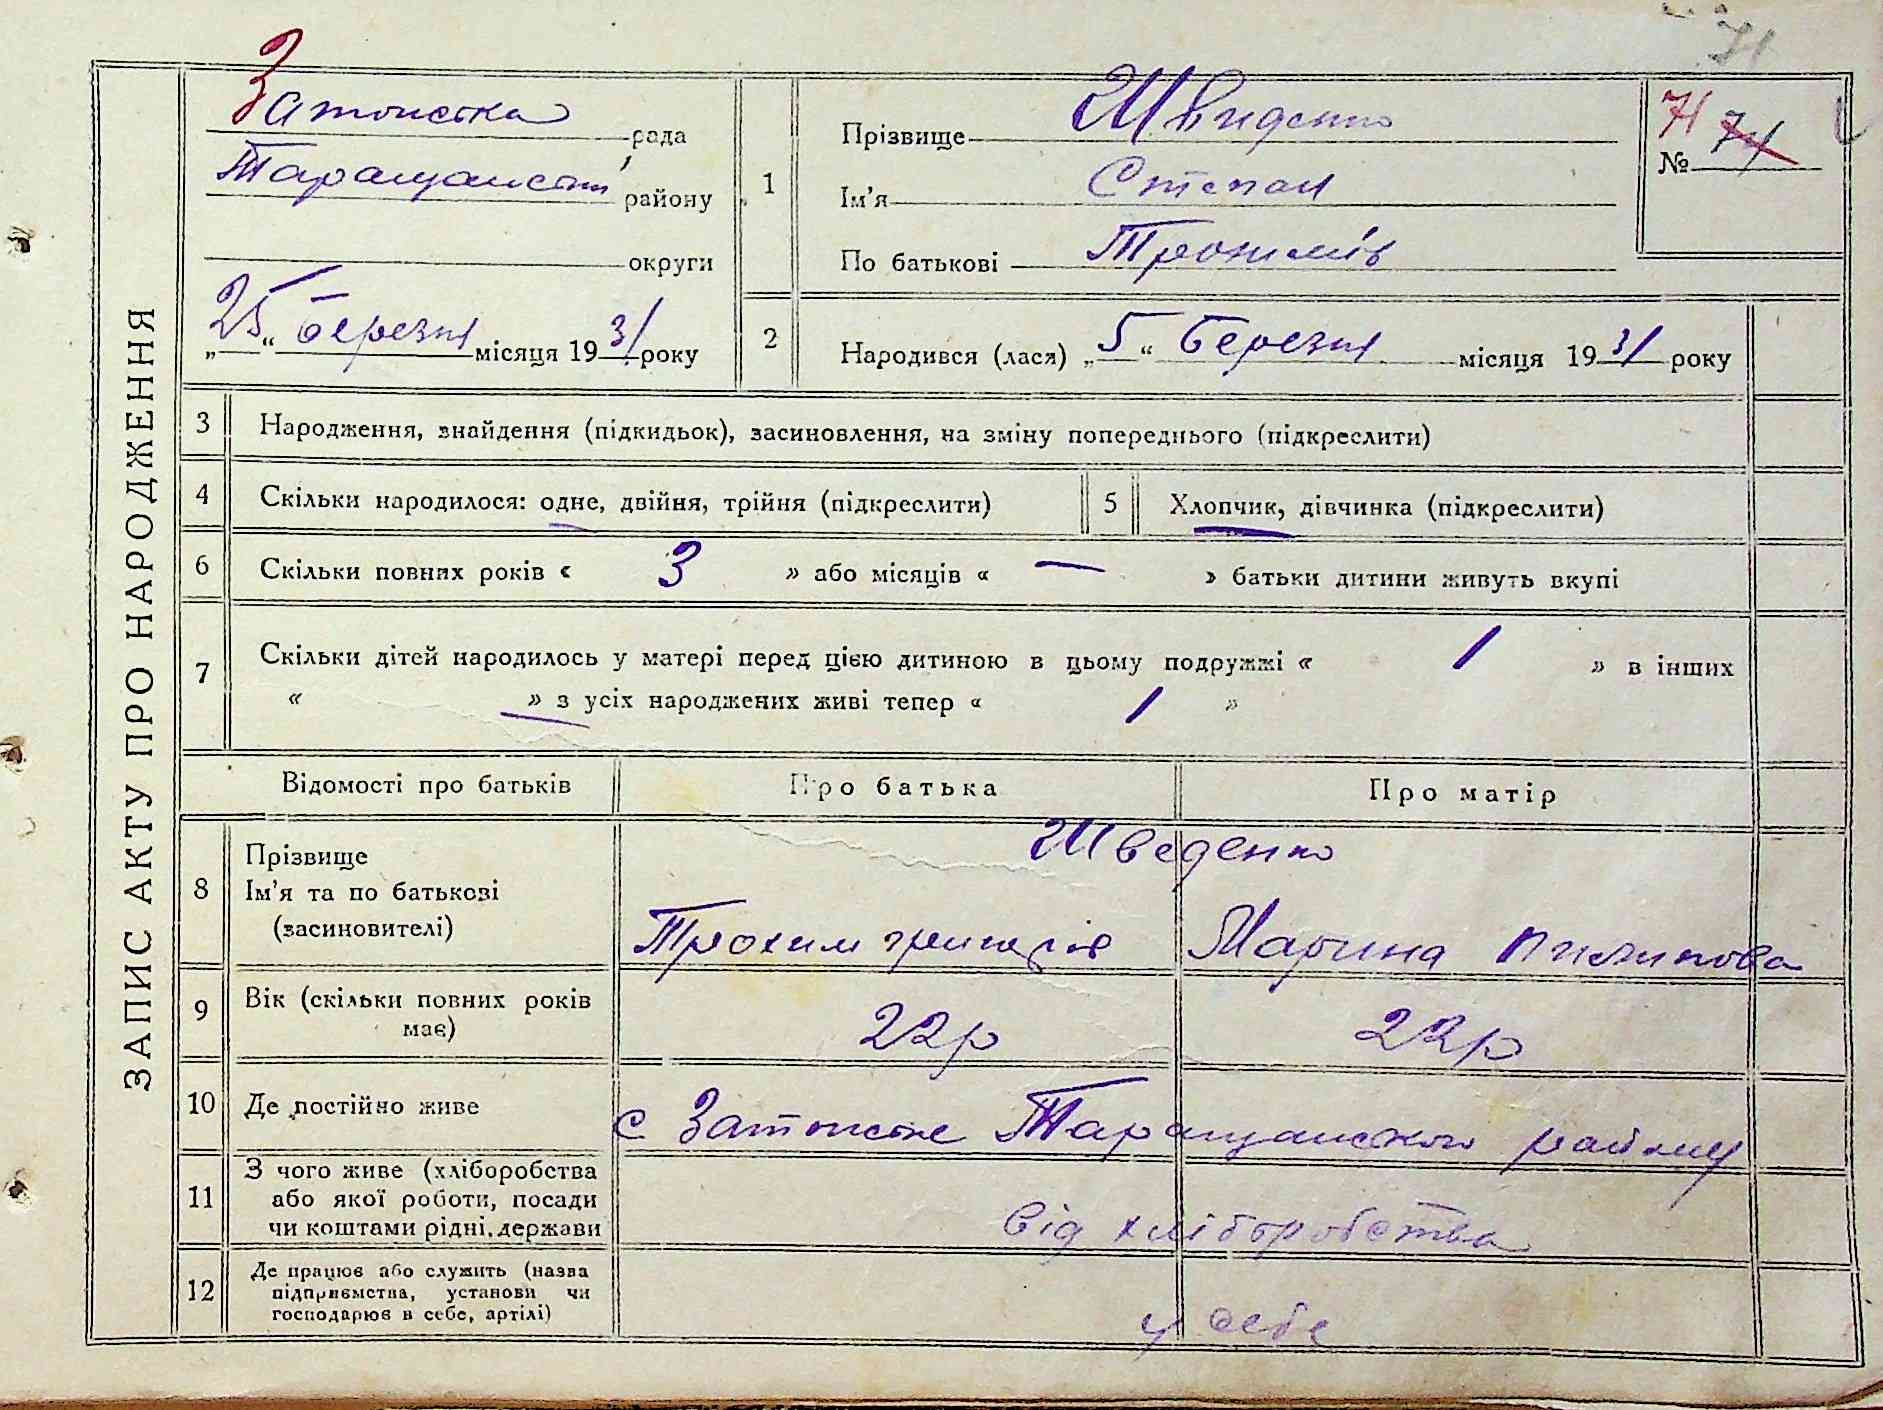 71
ЗАПИС АКТУ ПРО НАРОДЖЕННЯ
Затонска рада
Таращанськ району
округи
„25“ березня місяця 1931 року
1
Прізвище Швиденко
Ім'я Степан
По батькові Трохимів
71 № 74
2
Народився (лася) „5“ березня місяця 1931 року
3 Народження, знайдення (підкидьок), засиновлення, на зміну попереднього (підкреслити)
4 Скільки народилося: одне, двійня, трійня (підкреслити)
5 Хлопчик, дівчинка (підкреслити)
6 Скільки повних років « 3 » або місяців « — » батьки дитини живуть вкупі
7 Скільки дітей народилось у матері перед цією дитиною в цьому подружжі « 1 » в інших
« — » з усіх народжених живі тепер « 1 »
Відомості про батьків Про батька Про матір
8 Прізвище
Ім'я та по батькові
(засиновителі)
Шведенко
Трохим григорів Марина пилипова
9 Вік (скільки повних років
має)
22р 22р
10 Де постійно живе
с Затонске Таращанского району
11 З чого живе (хліборобства
або якої роботи, посади
чи коштами рідні, держави
від хліборобства
12 Де працює або служить (назва
підприємства, установи чи
господарює в себе, артілі)
у себе